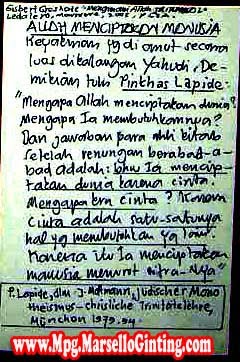 Gisbert Greshake "Mengimani Allah TRITUNGGAL"
Ledalero, Maumere, 2003,
ALLAH MENCIPTAKAN MANUSIA
Keyakinan yg di anut secara
luas dikalangan Yahudi, De-
mikian tulis Pinkhas Lapide:
"Mengapa Allah menciptakan dunia?
Mengapa Ia membutuhkannya?
Dan jawaban para ahli kitab
setelah renungan berabad-a-
bad adalah: bhw Ia mencip-
takan dunia karena cinta.
Mengapa krn cinta? Karena
cinta adalah satu-satunya
hal yg membutuhkan yg lain.
Karena itu Ia menciptakan
manusia menurut citra-Nya"
P. Lapide, dlm J. Moltmann, Jüdischer Mono
theismus-christliche Trinitätslehre,
München 1979. 54.
www.Mpg.MarselloGinting.com